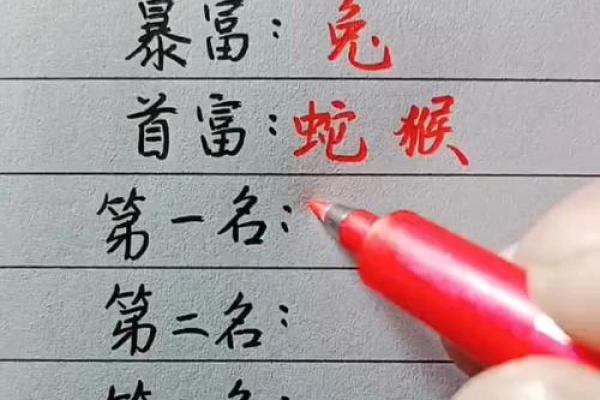 暴富:兔
首富:蛇猴
第一名:
第二名: